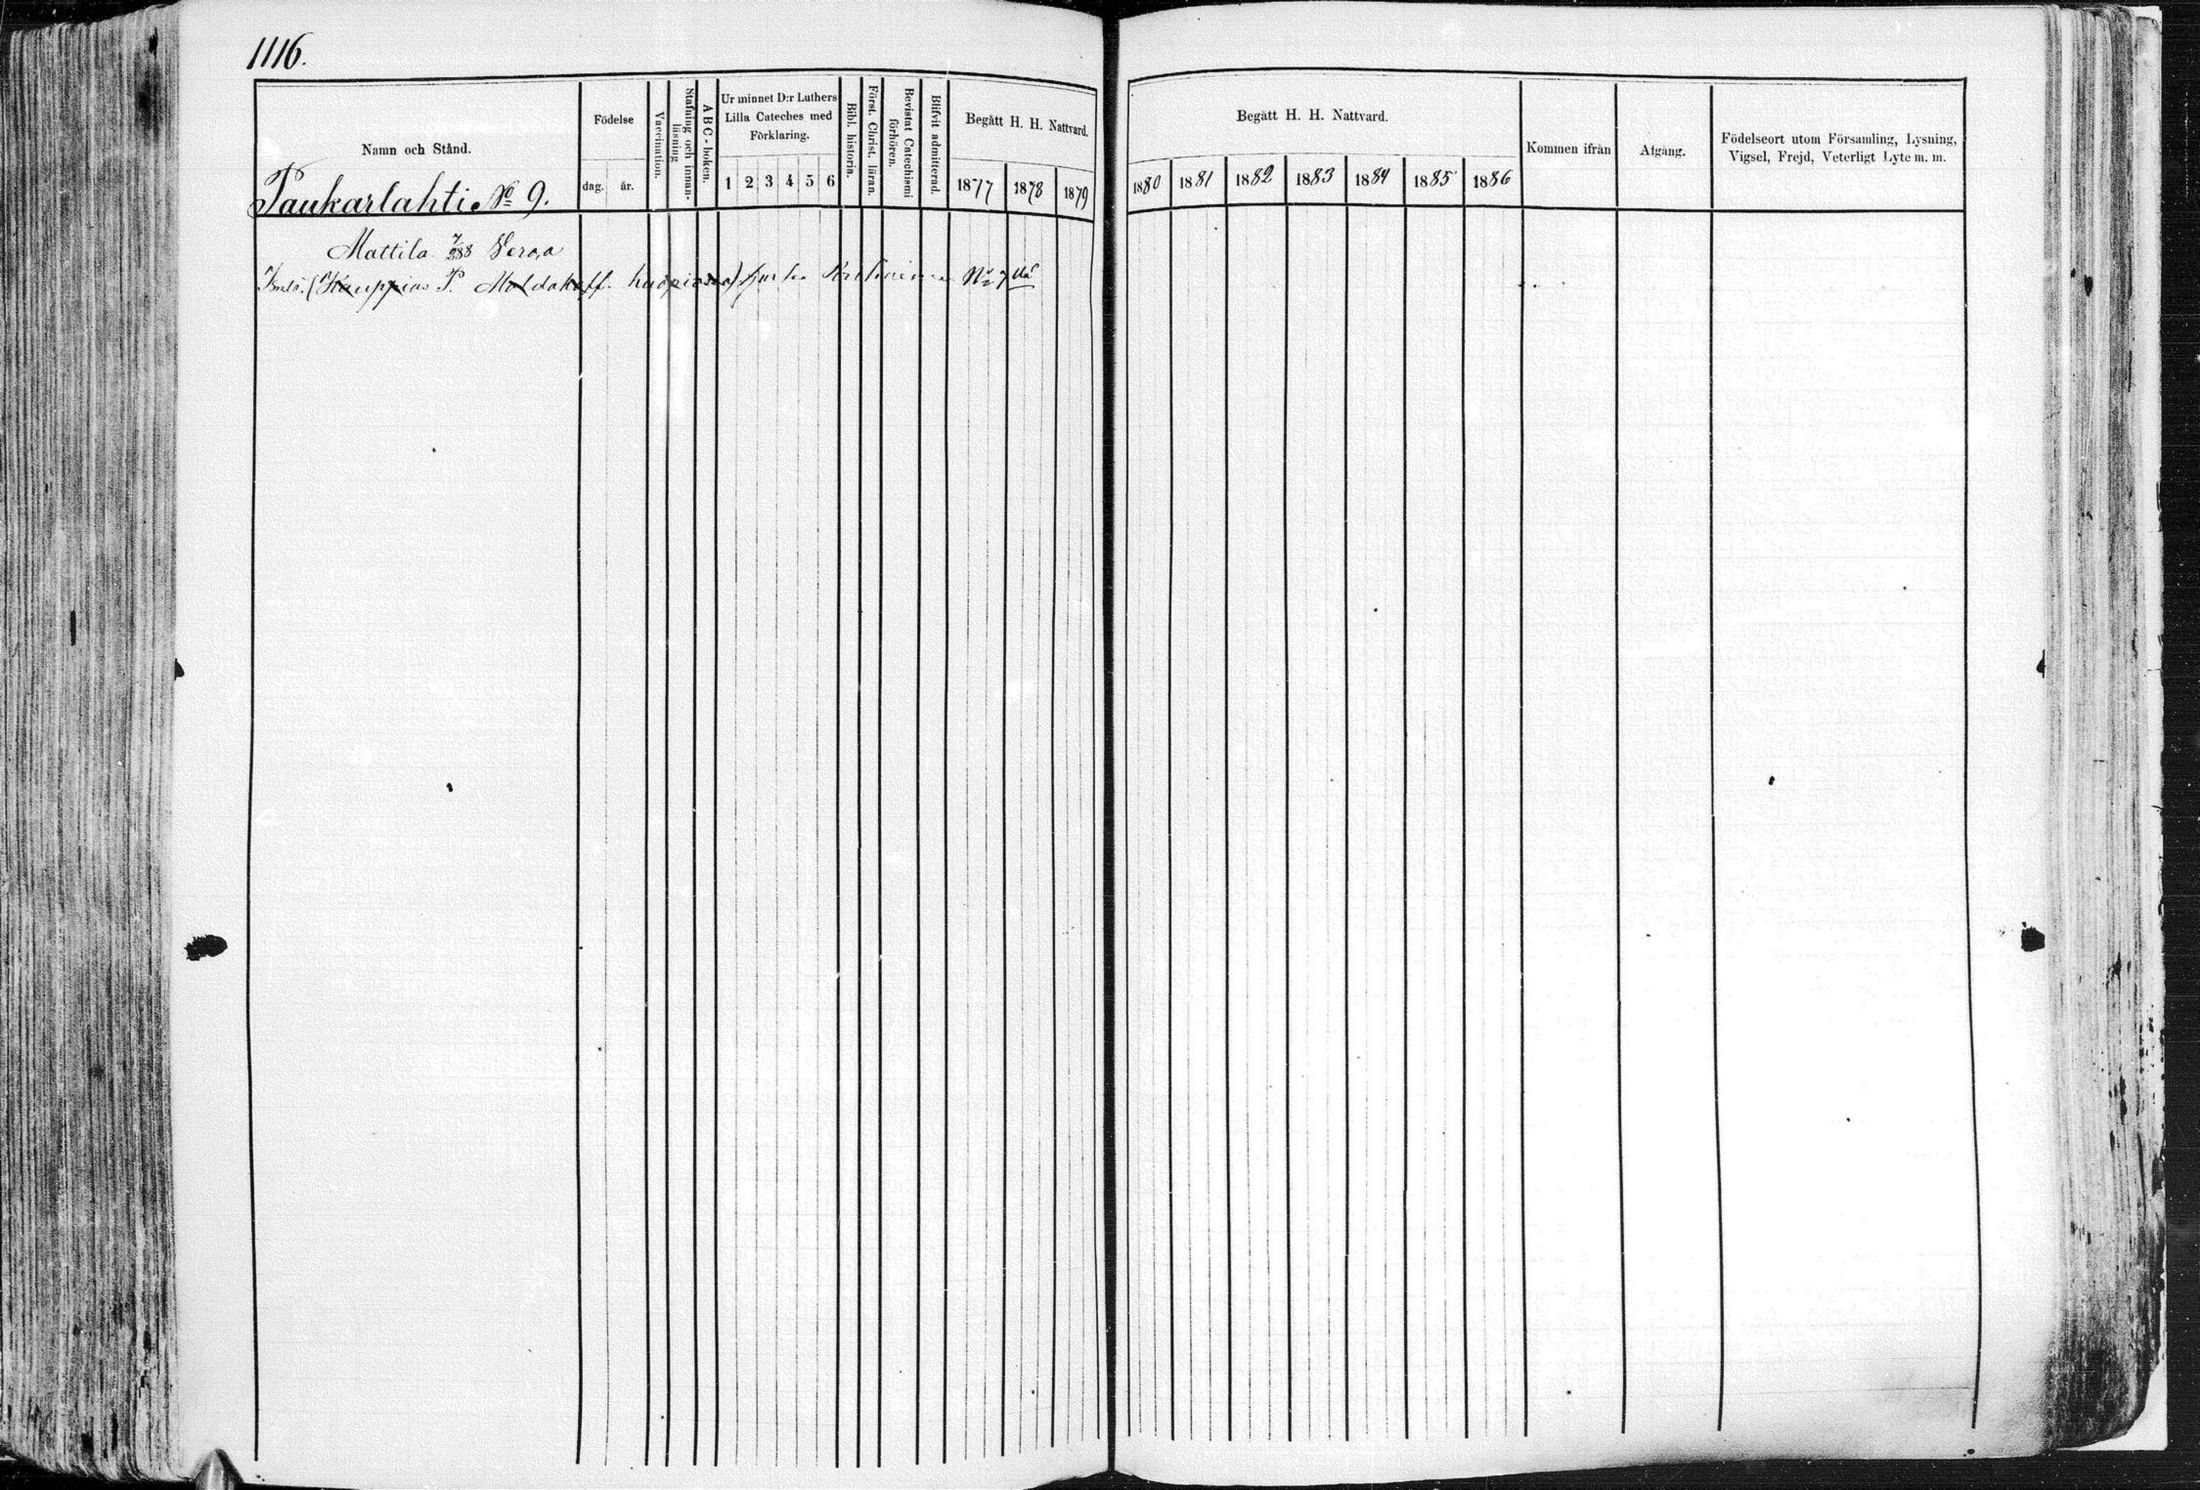 1116.
Namn och Stånd.
Födelse
dag. år.
Vaccination.
Stafning och innan-
läsning
A B C - boken.
Ur minnet D:r Luthers
Lilla Cateches med
Förklaring.
1 2 3 4 5 6
Bibl. historia.
Först. Christ. läran.
Bevistat Catechismi
förhören.
Blifvit admitterad.
Begått H. H. Nattvard.
1877 1878 1879
Paukarlahti No 9.
Mattila
(Kauppias P. Moldakoff Kuopiossa)
Begått H. H. Nattvard.
1880 1881 1882 1883 1884 1885 1886
Kommen ifrån
Afgång.
Födelseort utom Församling, Lysning,
Vigsel, Frejd, Veterligt Lyte m. m.